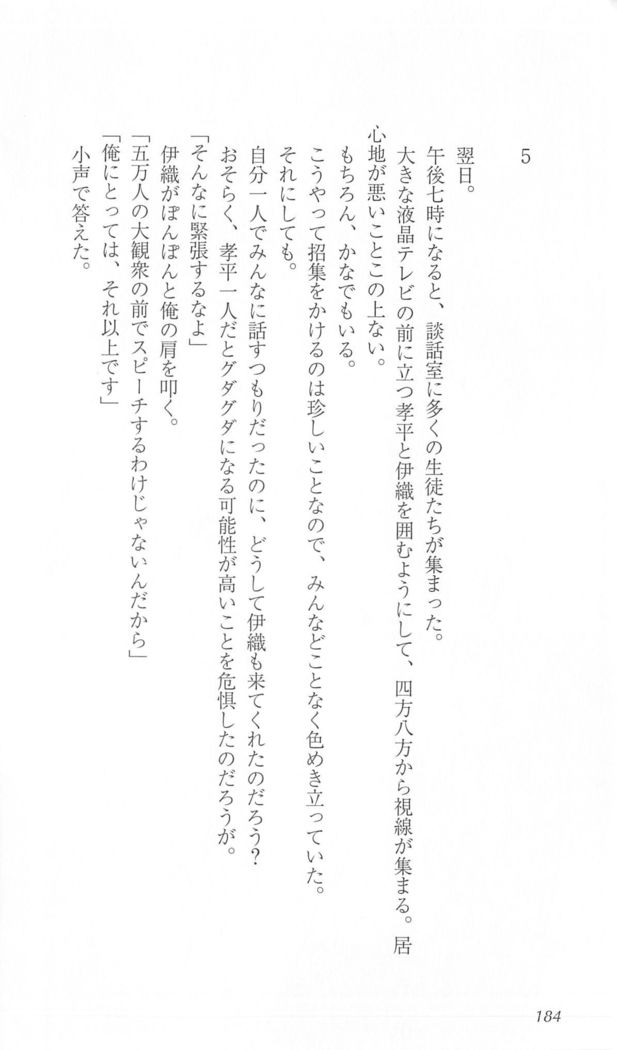 5
翌日。
午後七時になると、談話室に多くの生徒たちが集まった。
大きな液晶テレビの前に立つ孝平と伊織を囲むようにして、四方八方から視線が集まる。居
心地が悪いことこの上ない。
もちろん、かなでもいる。
こうやって招集をかけるのは珍しいことなので、みんなどことなく色めき立っていた。
それにしても。
自分一人でみんなに話すつもりだったのに、どうして伊織も来てくれたのだろう?
おそらく、孝平一人だとグダグダになる可能性が高いことを危惧したのだろうが。
「そんなに緊張するなよ」
伊織がぽんぽんと俺の肩を叩く。
「五万人の大観衆の前でスピーチするわけじゃないんだから」
「俺にとっては、それ以上です」
小声で答えた。
184